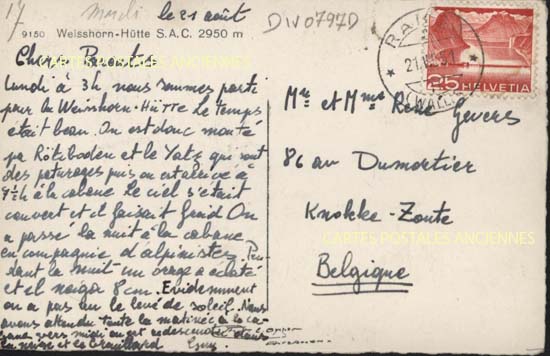 17
mardi le 21 août
DIV0797D
9150 Weisshorn-Hütte S.A.C. 2950 m
Chers
Lundi à 3h nous sommes parti
pour la Weisshorn-Hütte Le temps
était beau. On est donc monté
par Rötiboden et le Yatz qui sont
des paturages puis on est arrivé à
7½h à la cabane Le ciel s'était
couvert et il faisait froid On
a passé la nuit à la cabane
en compagnie d'alpinistes. Pen-
dant la nuit un orage a éclaté
et il neigea 8cm. Evidemment
on a pas vu le levé de soleil. Nous
avons attendu toute la matinée à la ca-
bane vers midi on est redescendu dans
la neige et le brouillard
RA
21.VIII.51
(WALLIS)
25 HELVETIA
Mr et Mme René Gevers
86 av Dumortier
Knokke-Zoute
Belgique
CARTES POSTALES ANCIENNES
CARTES POSTALES ANCIENNES